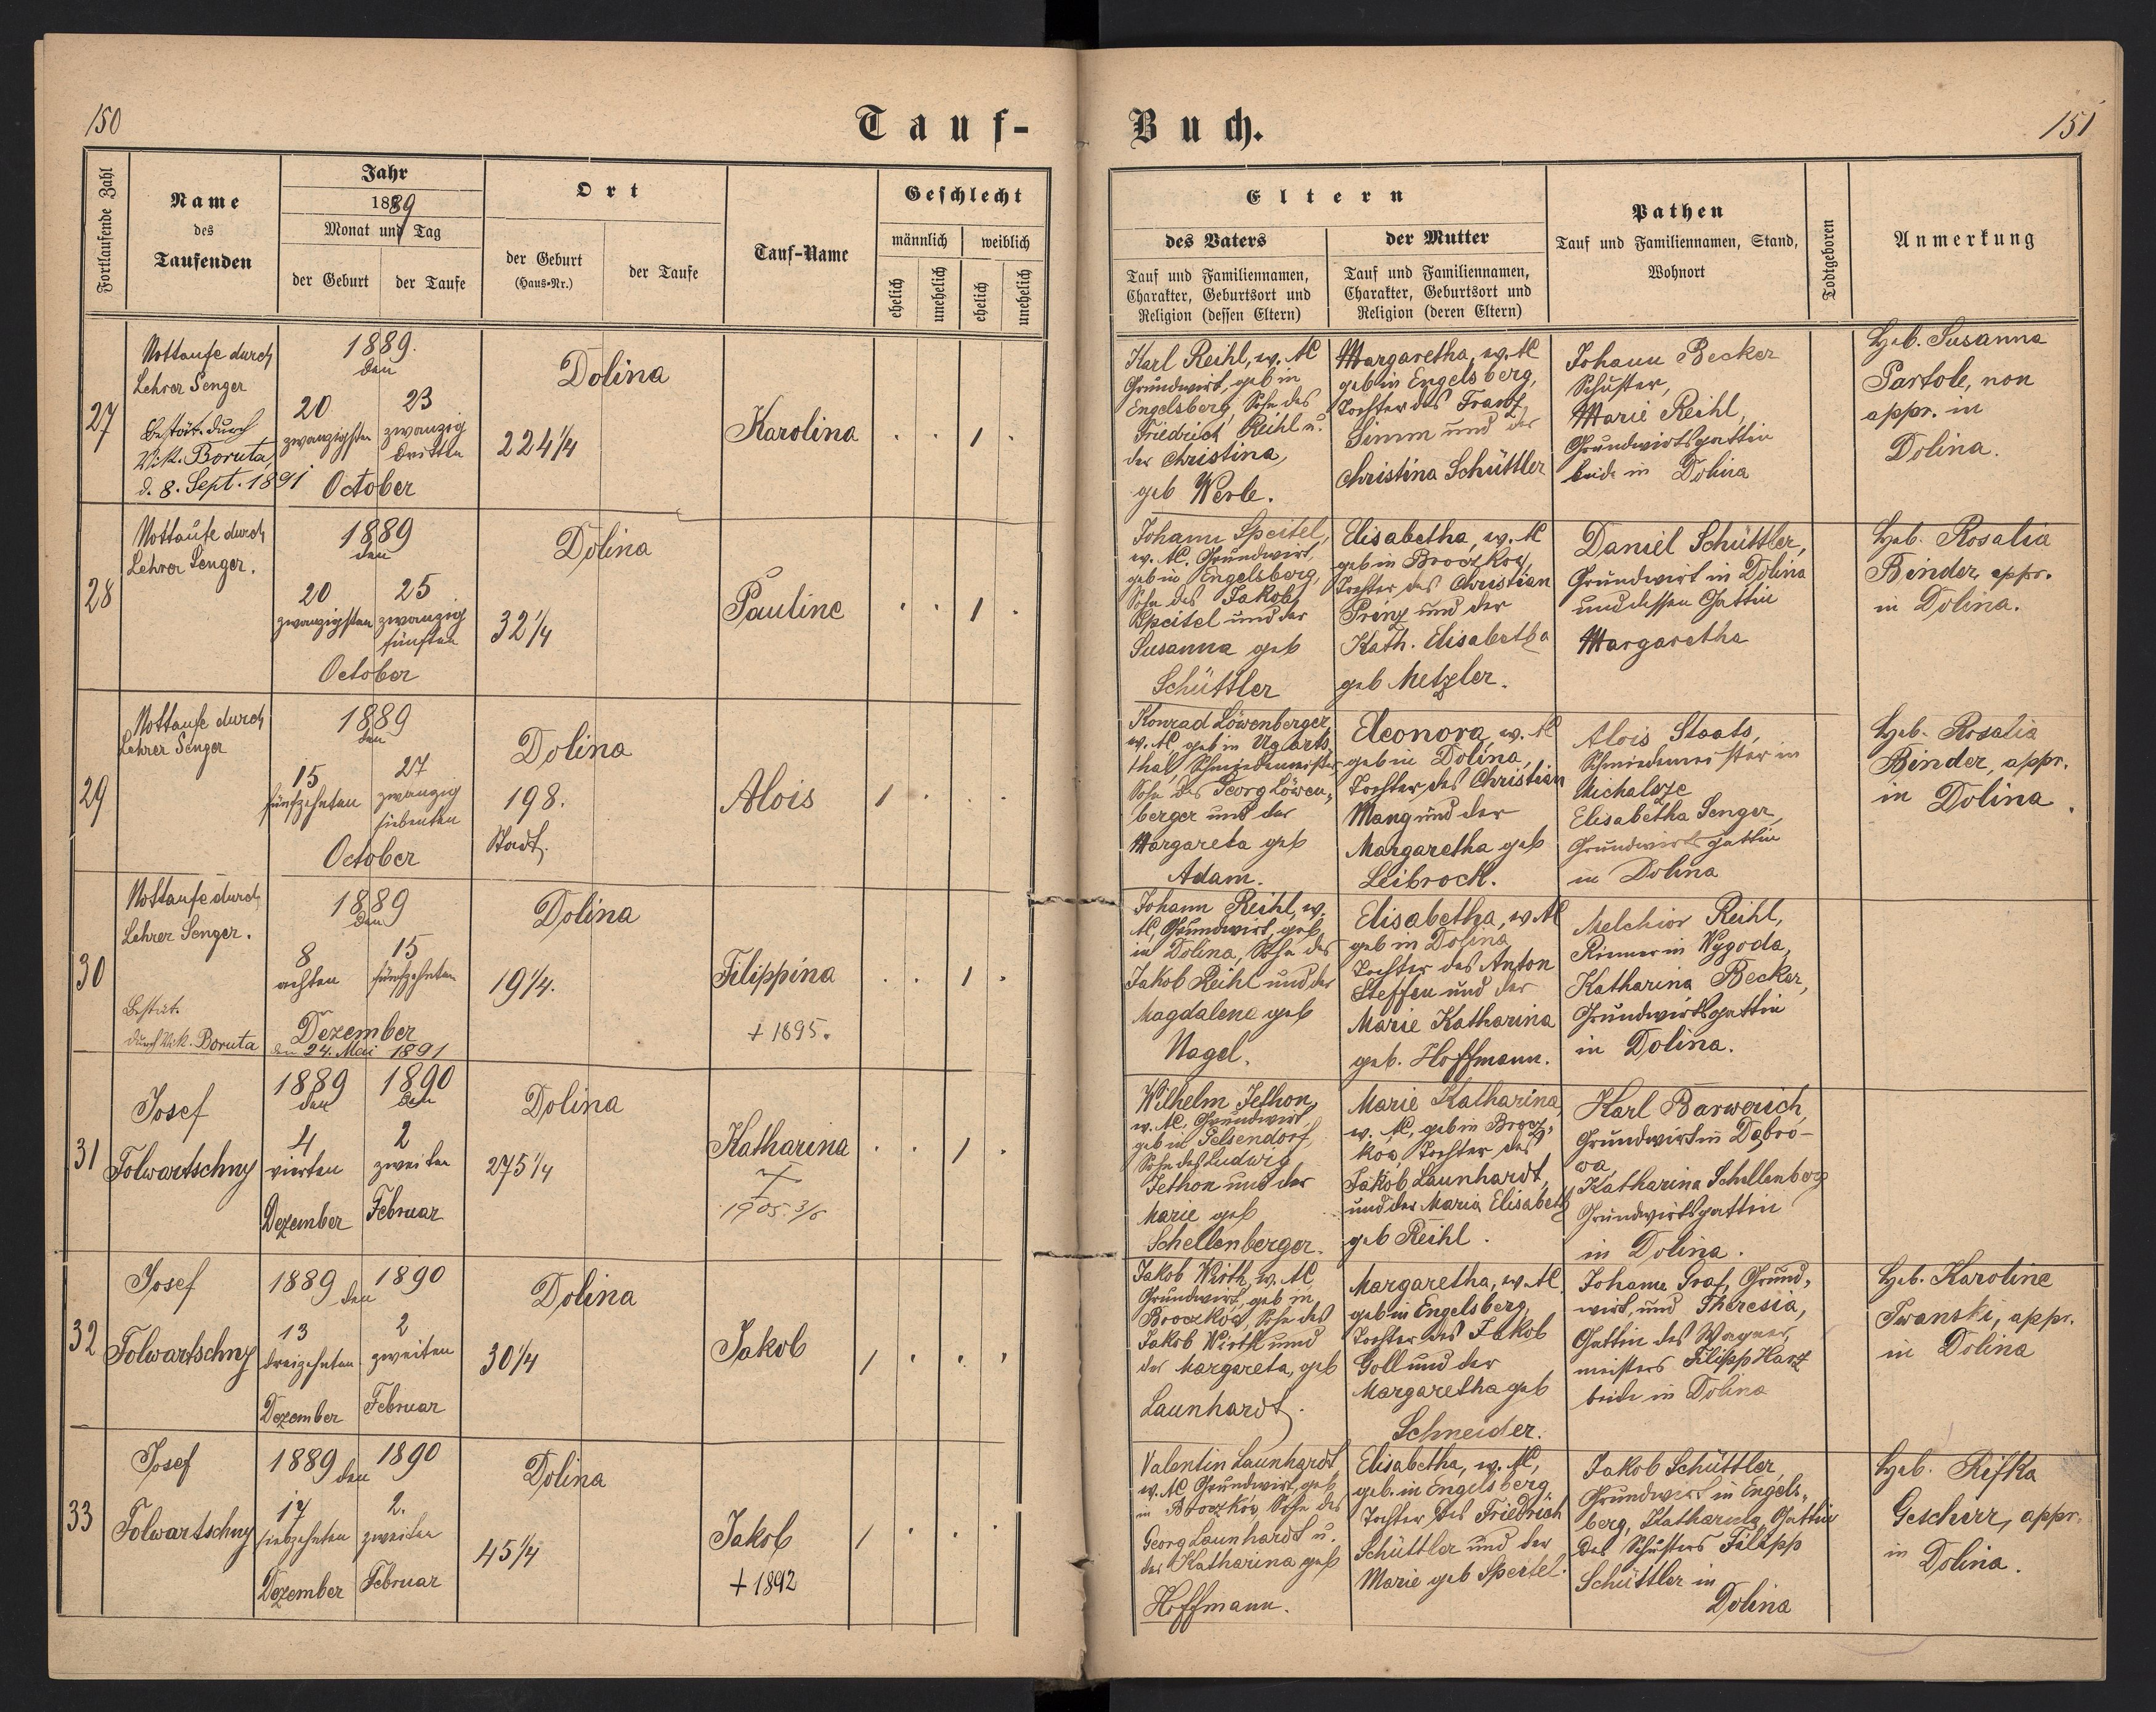 150
Tauf-
Fortlaufende Zahl
Name
des
Taufenden
Jahr
1889
Monat und Tag
der Geburt
der Taufe
Ort
der Geburt
(Haus-Nr.)
der Taufe
Tauf-Name
Geschlecht
männlich
weiblich
ehelich
unehelich
ehelich
unehelich
27
Nottaufe durch
Lehrer Senger
Bestät. durch
Vik. Boruta
d. 8. Sept. 1891
1889.
den
20
zwanzigsten
23
zwanzig
dritten
October
Dolina
224 1/4
Karolina
. . 1 .
28
Nottaufe durch
Lehrer Senger.
1889
den
20
zwanzigsten
25
zwanzig
fünften
October
Dolina
32 1/4
Pauline
. . 1 .
29
Nottaufe durch
Lehrer Senger
1889
den
15
fünfzehnten
27
zwanzig
siebenten
October
Dolina
198.
Stadt.
Alois
1 . . .
30
Nottaufe durch
Lehrer Senger.
Bestät.
durch Vik. Boruta
1889
den
8
achten
15
fünfzehnten
Dezember
den 24. Mai 1891
Dolina
19 1/4.
Filippina
+ 1895.
. . 1 .
31
Josef
Folwartschny
1889
den
4
vierten
Dezember
1890
den
2
zweiten
Februar
Dolina
275 1/4
Katharina
+
1905. 3/6
. . 1 .
32
Josef
Folwartschny
1889 den 1890
13
dreizehnten
Dezember
2
zweiten
Februar
Dolina
30 1/4
Jakob
1 . . .
33
Josef
Folwartschny
1889 den 1890
17
siebzehnten
Dezember
2.
zweiten
Februar
Dolina
45 1/4
Jakob
+ 1892
1 . . .
Buch.
151
Eltern
des Vaters
Tauf und Familiennamen,
Charakter, Geburtsort und
Religion (dessen Eltern)
der Mutter
Tauf und Familiennamen,
Charakter, Geburtsort und
Religion (deren Eltern)
Pathen
Tauf und Familiennamen, Stand,
Wohnort
Todtgeboren
Anmerkung
Karl Reihl, ev. AC
Grundwirt, geb in
Engelsberg, Sohn des
Friedrich Reihl u.
der Christina,
geb Werle.
Margaretha, ev. AC
geb in Engelsberg,
Tochter des Franz
Simm und der
Christina Schüttler
Johann Becker
Schuster,
Marie Reihl,
Grundwirtsgattin
beide in Dolina
Heb. Susanna
Partole, non
appr. in
Dolina.
Johann Speitel,
ev. AC. Grundwirt,
geb in Engelsberg,
Sohn des Jakob
Speitel und der
Susanna geb
Schüttler
Elisabetha, ev. AC
geb in Broczkow,
Tochter des Christian
Prinz und der
Kath. Elisabetha
geb Metzler.
Daniel Schüttler,
Grundwirt in Dolina
und dessen Gattin
Margaretha
Heb. Rosalia
Binder, appr.
in Dolina.
Konrad Löwenberger,
ev. AC, geb in Ugarts
thal, Schmiedemeister
Sohn des Georg Löwen-
berger und der
Margareta geb
Adam.
Eleonora, ev. AC
geb in Dolina,
Tochter des Christian
Mang und der
Margaretha geb
Leibrock.
Alois Staats,
Schmiedemeister in
Michalsze
Elisabetha Senger,
Grundwirtsgattin
in Dolina
Heb. Rosalia
Binder, appr.
in Dolina.
Johann Reihl, ev.
AC, Grundwirt, geb
in Dolina, Sohn des
Jakob Reihl und der
Magdalena geb
Nagel.
Elisabetha, ev AC
geb in Dolina
Tochter des Anton
Steffen und der
Marie Katharina
geb. Hoffmann.
Melchior Reihl,
Riemer in Wygoda,
Katharina Becker,
Grundwirtsgattin
in Dolina.
Wilhelm Jethon,
ev. AC, Grundwirt,
geb in Gelsendorf,
Sohn des Ludwig
Jethon und der
Marie geb
Schellenberger.
Marie Katharina,
ev. AC, geb in Brocz-
kow, Tochter des
Jakob Launhardt,
und der Maria Elisabeth
geb Reihl.
Karl Barwerich,
Grundwirt in Dabro-
wa,
Katharina Schellenberg
Grundwirtsgattin
in Dolina.
Jakob Wirth, ev. AC,
Grundwirt, geb in
Broczkow, Sohn des
Jakob Wirth und
der Margareta, geb
Launhardt.
Margaretha, ev. AC,
geb in Engelsberg,
Tochter des Jakob
Goll und der
Margaretha geb
Schneider.
Johann Graf, Grund-
wirt, und Theresia,
Gattin des Wagner-
meisters Filipp Harz
beide in Dolina
Heb. Karoline
Iwanski, appr.
in Dolina
Valentin Launhardt
ev. AC Grundwirt, geb
in Broczkow, Sohn des
Georg Launhardt u.
der Katharina geb
Hoffmann.
Elisabetha, ev. AC,
geb. in Engelsberg
Tochter des Friedrich
Schüttler und der
Marie geb Speitel.
Jakob Schüttler,
Grundwirt in Engels-
berg, Katharina, Gattin
des Schusters Filipp
Schüttler in
Dolina
Heb. Rifka
Geschirr, appr.
in Dolina.